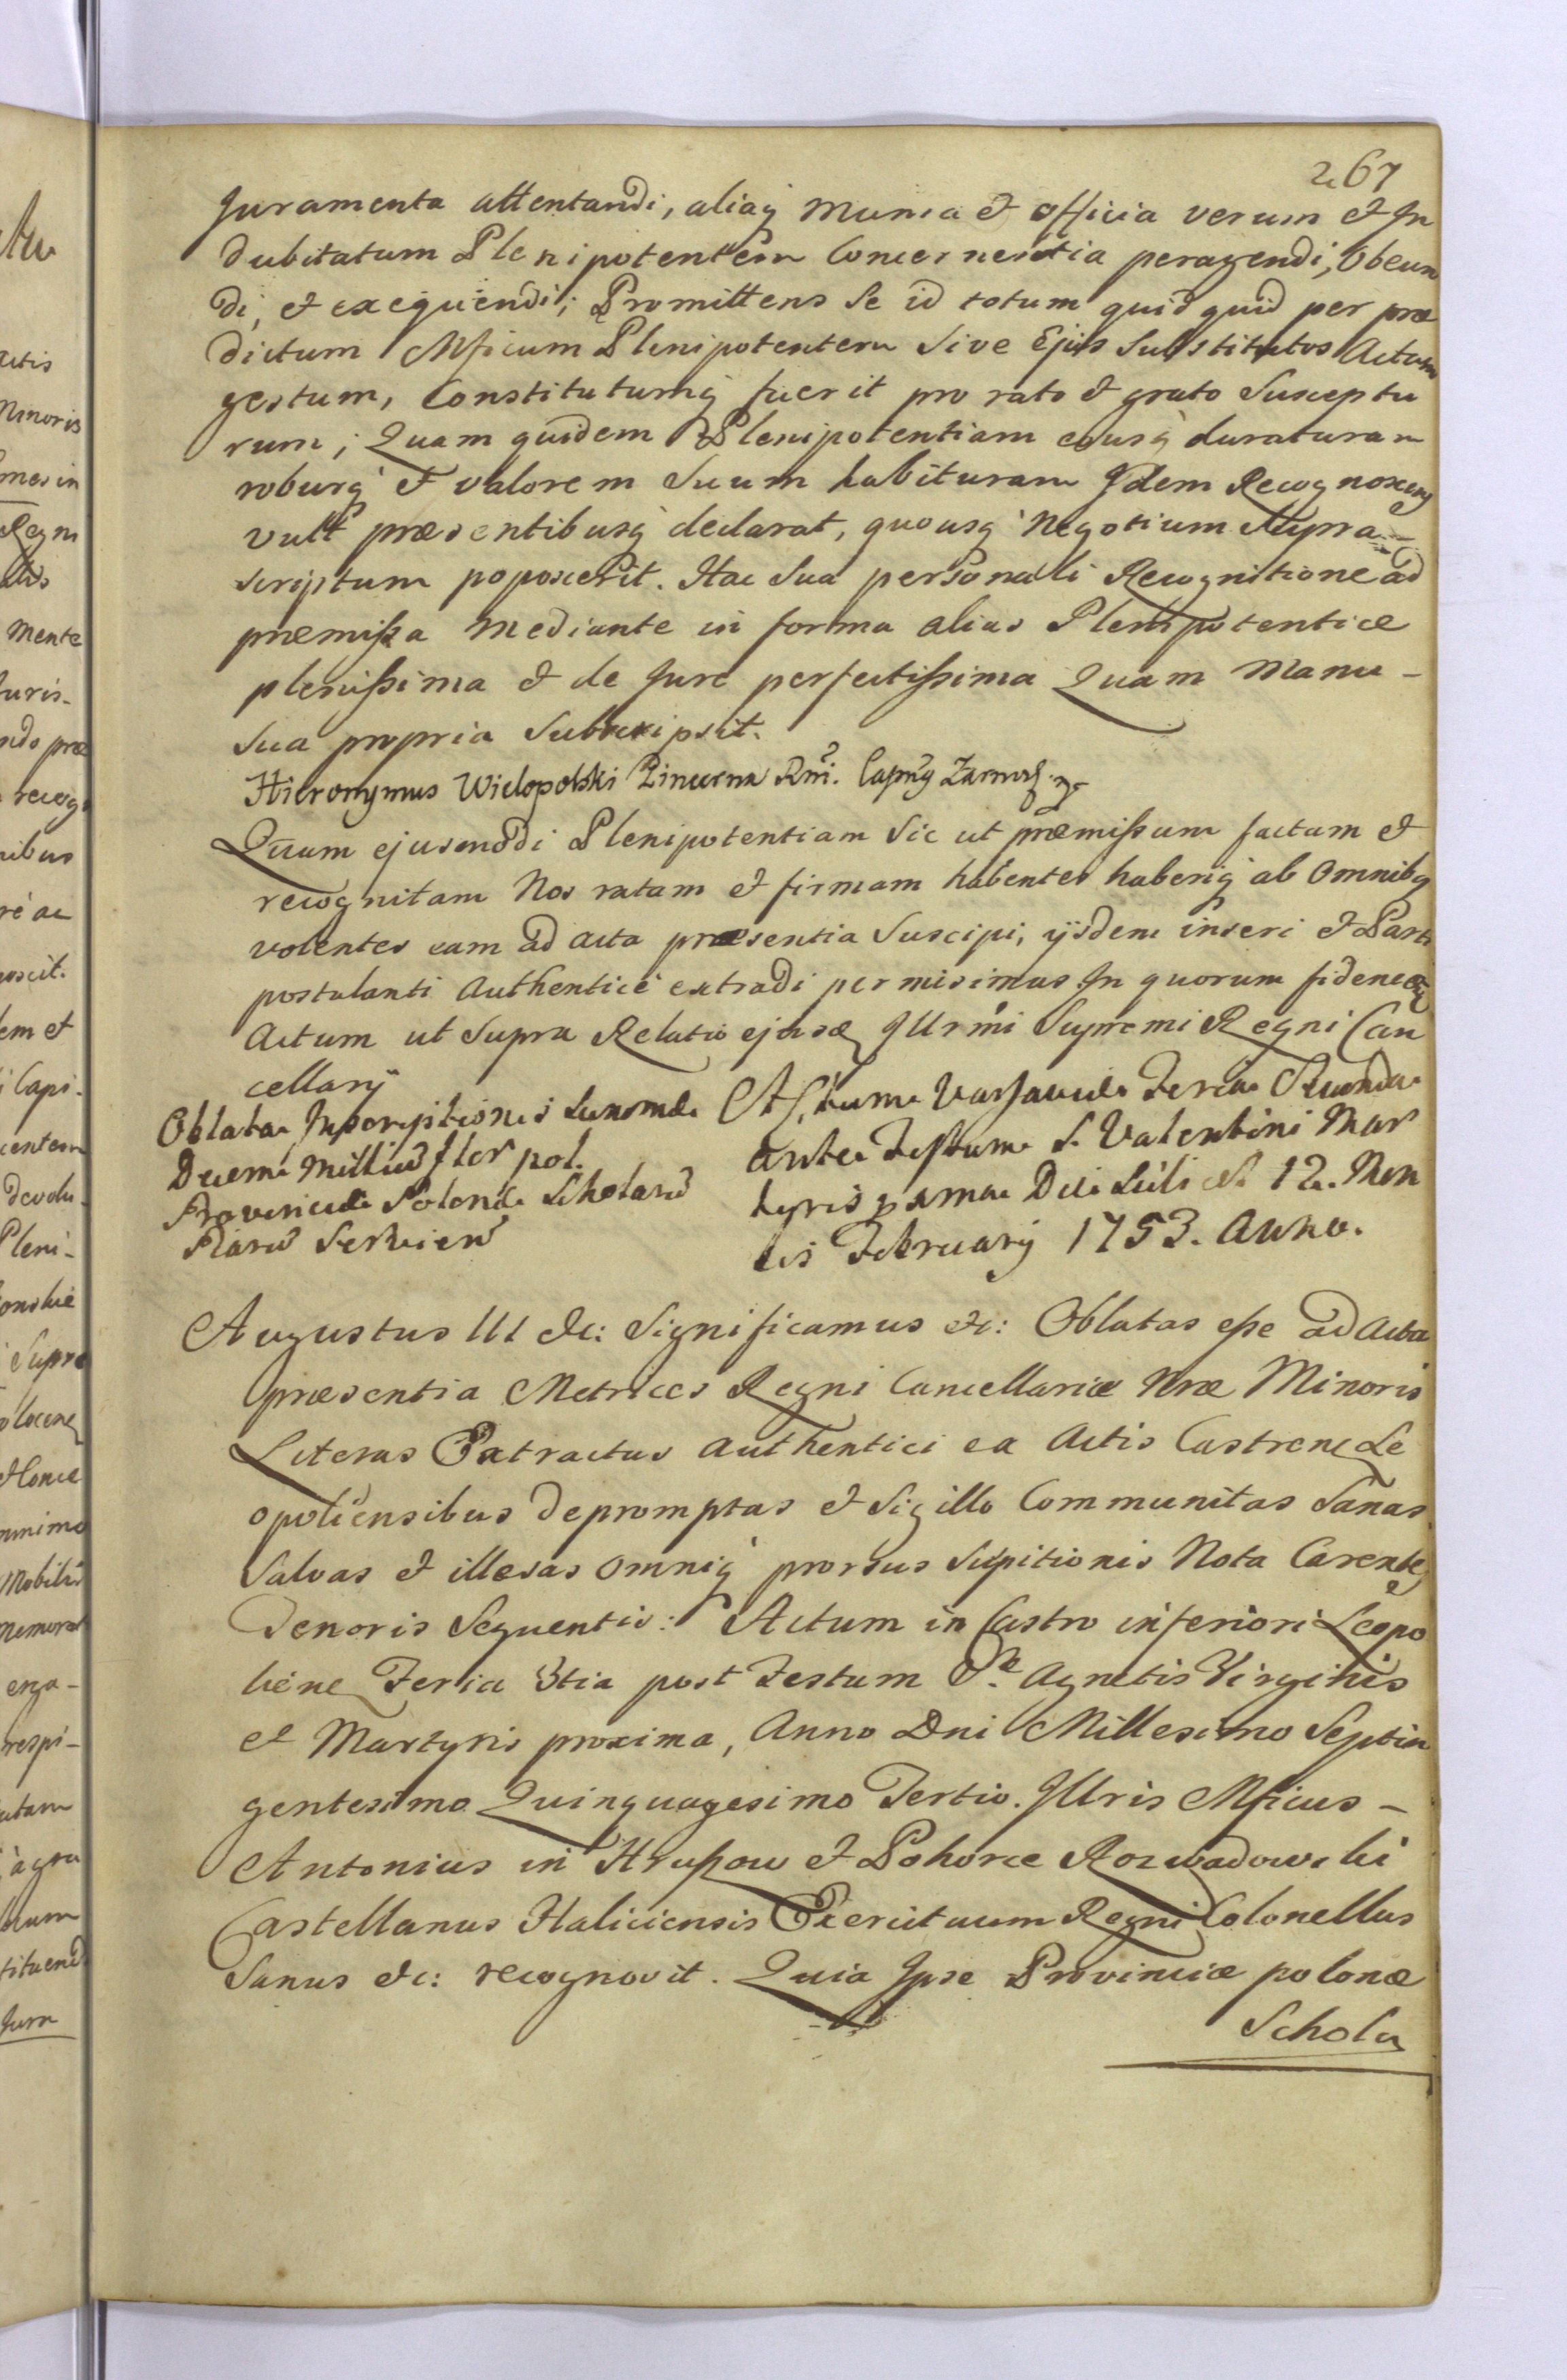 267
Juramenta attentandi, aliaq munia et officia verum et In
dubitatum Plenipotentem Concernentia peragendi, Obeun
di, et exequendi; Promittens Se id totum quidquid per præ
dictum Mficum Plenipotentem Sive Ejus Substitutos Actum
gestum, Constitutumq fuerit pro rato et grato Susceptu
rum; Quam quidem Plenipotentiam eousq duraturam
roburq et valorem Suum habituram Idem Recognoscens
vult præsentibusq declarat, quousq Negotium Supra
scriptum poposcerit. Hac Sua personali Recognitione ad
præmissa Mediante in forma alias Plenipotentiæ
plenissima et de Jure perfectissima Quam Manu -
Sua propria Subscripsit.
Hieronymus Wielopolski Pincerna Rni. Capnus Zarnov.
Quam ejusmodi Plenipotentiam Sic ut præmissum factam et
recognitam Nos ratam et firmam habentes haberiq ab Omnibq
volentes eam ad acta præsentia Suscipi, ijsdem inseri et Parti
postulanti Authenticè extradi permisimus In quorum fidem etc
Actum ut Supra Relatio ejusd Illrmi Supremi Regni Can
cellarij
Oblata Inscriptionis Summæ
Decem Milliu flor pol.
Provinciæ Polonæ Scholaru
Piaru Servien
Actum Varsaviæ Feria Secunda
ante Festum S. Valentini Mar
tyris pxma Die scili d. 12. Men
sis February 1753. Anno.
Augustus III etc: Significamus etc: Oblatas esse ad Acta
præsentia Metrices Regni Cancellariæ Nræ Minoris
Literas Extractus authentici ex Actis Castren Le
opoliensibus depromptas et Sigillo Communitas Sanas
Salvas et illesas Omniq prorsus Supitionis Nota Carentes
Tenoris Sequentis: Actum in Castro inferiori Leopo
lien Feria 3tia post Festum Stæ Agnetis Virginis
et Martyris proxima, Anno Dni Millesimo Septin
gentesimo Quinquagesimo Tertio. Illris Mficus -
Antonius in Hruszow et Pohorce Rozwadowski
Castellanus Haliciensis Exercituum Regni Colonellus
Sanus etc: recognovit. Quia Ipse Provinciæ polonæ
Schola